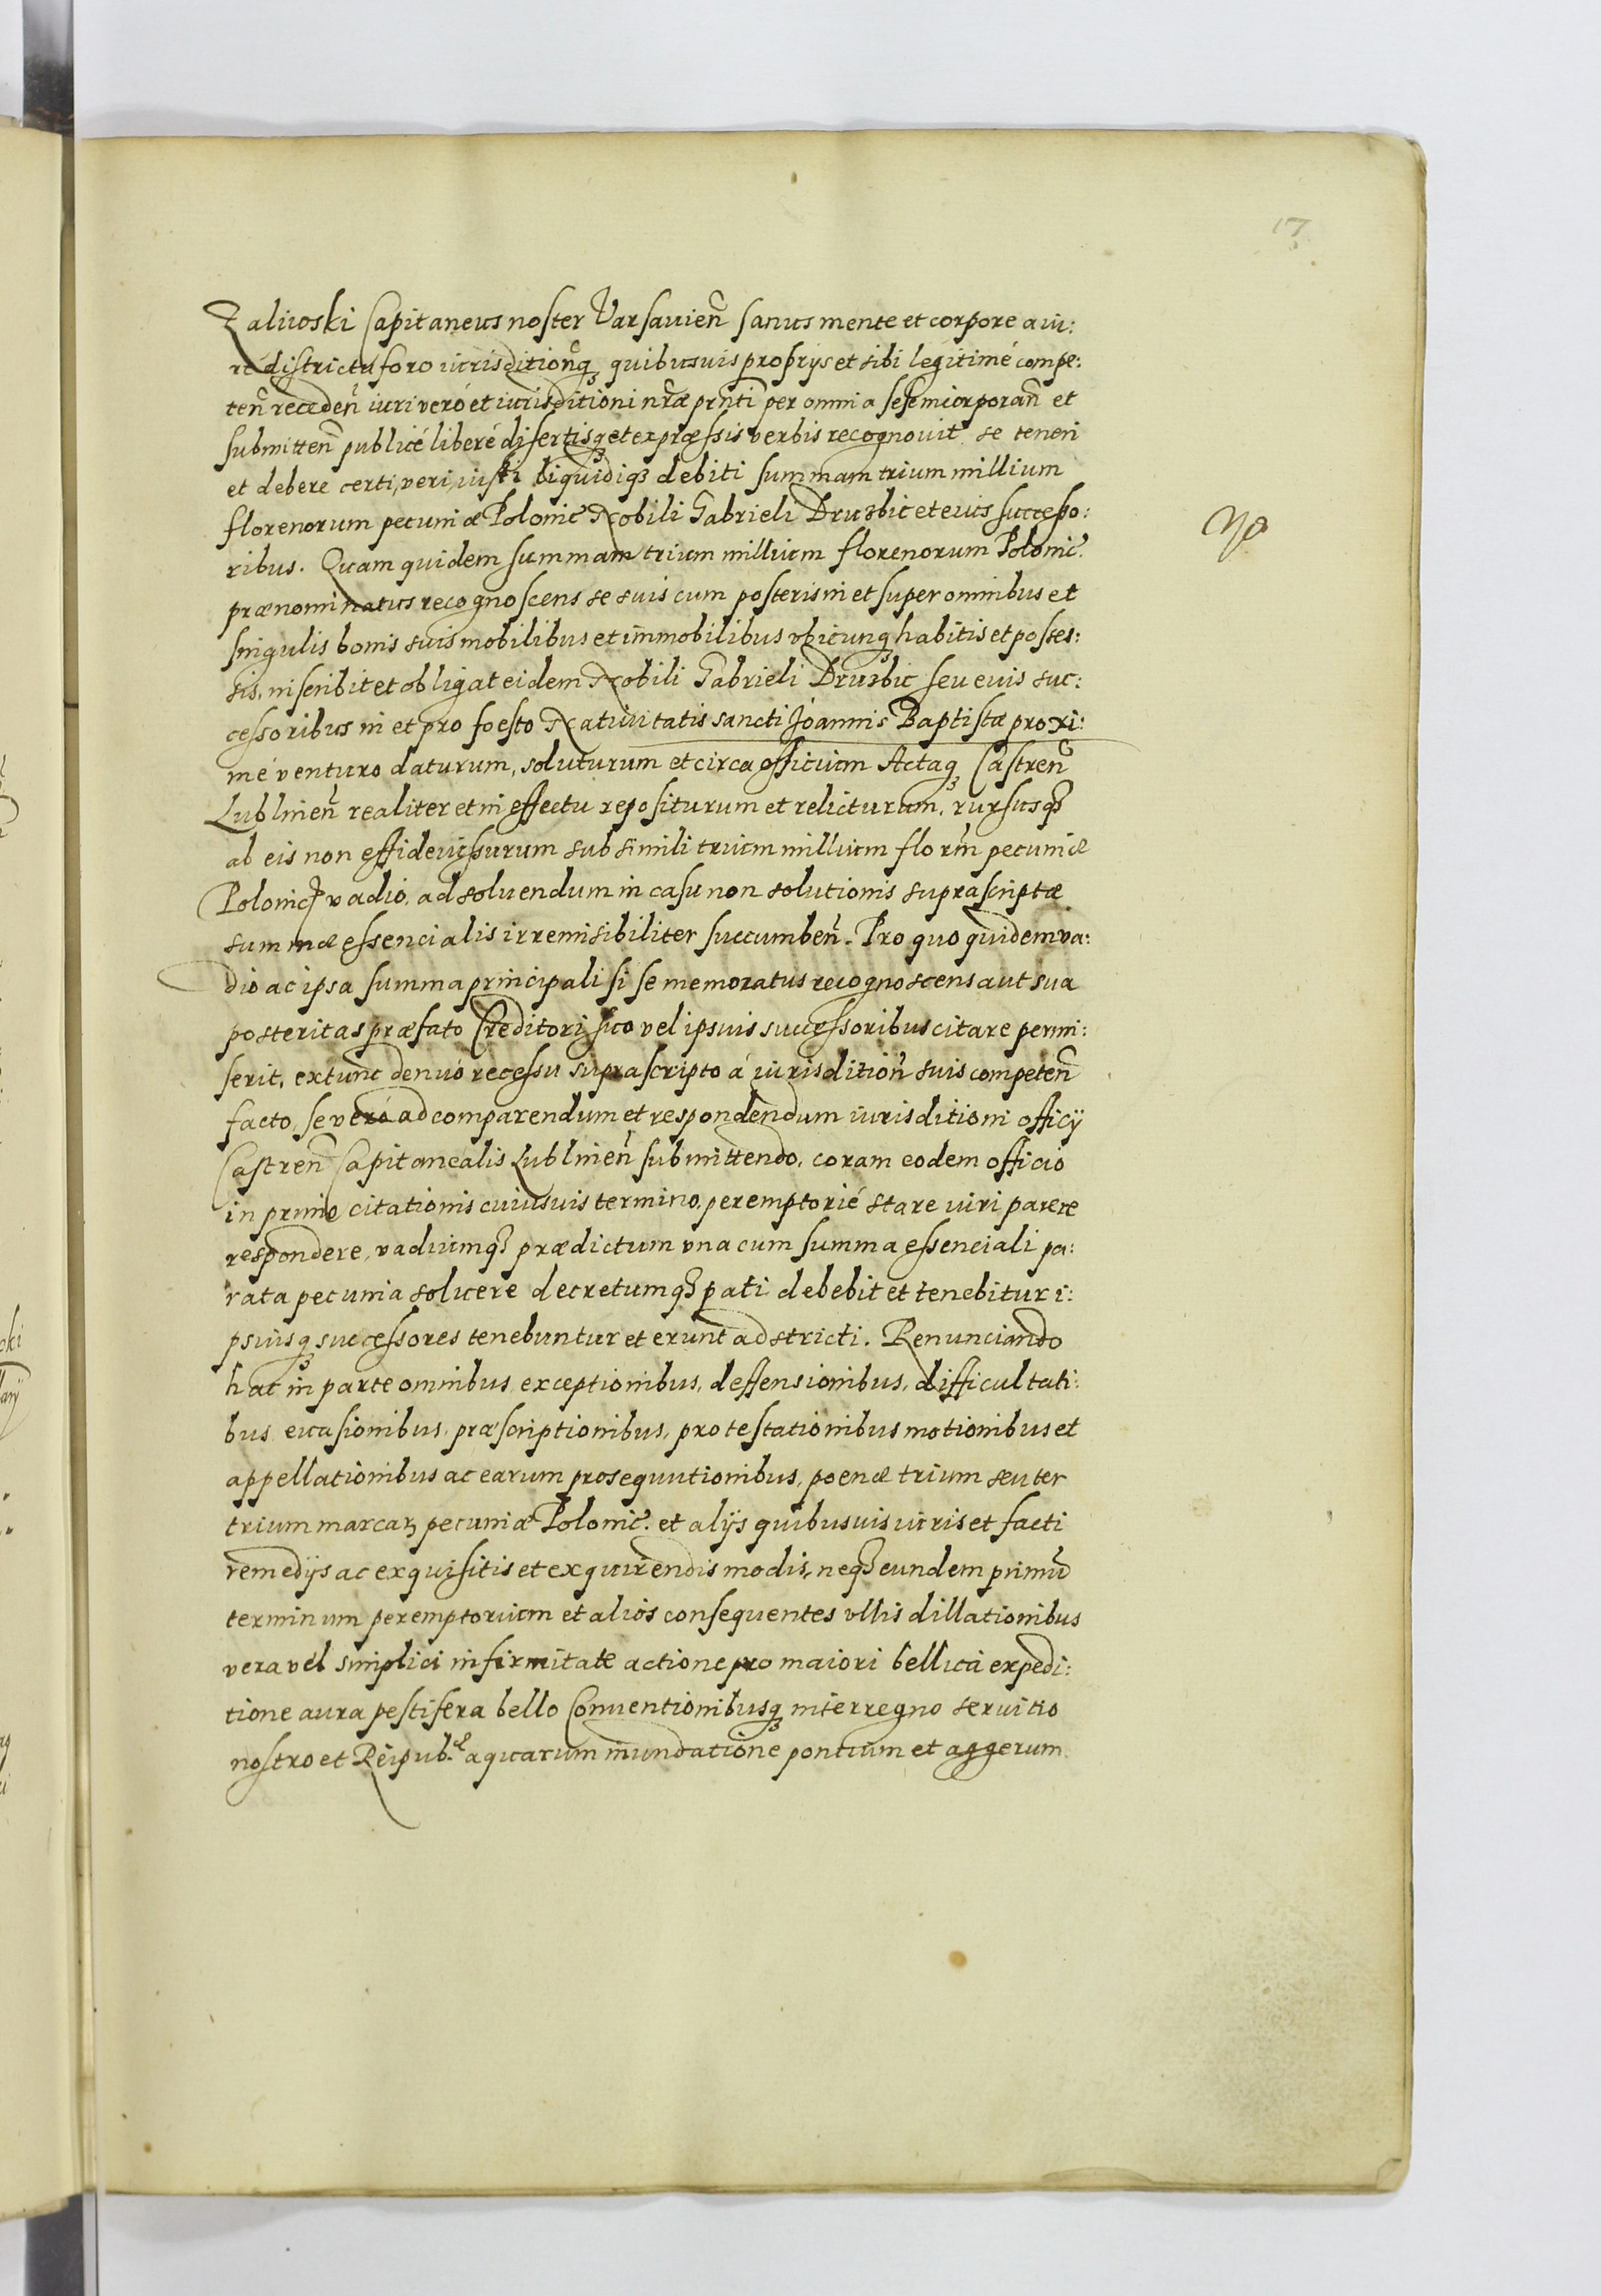 17
Zaliwski Capitaneus noster Varsavien̄ sanus mente et corpore a iu:
re districtu foro iurisditionēq₃ quibusuis proprijs et sibi legitimé compe:
ten̄ receden̄ iuri veró et iurisditioni nr̄æ pr̄nti per omnia sese incorporan̄ et
submitten̄ publicé liberé disertisq₃ et expræssis verbis recognouit se teneri
et debere certi, veri, iusti liquidiq₃ debiti summam trium millium
florenorum pecuniæ Polonic̄ Nobili Gabrieli Druzbic et eius successo:
No
ribus. Quam quidem summam trium millium florenorum Polonic̄.
prænominatus recognoscens se suis cum posteris in et super omnibus et
singulis bonis suis mobilibus et immobilibus vbicunq₃ habitis et posses:
sis, inscribit et obligat eidem Nobili Gabrieli Druzbic seu euis suc:
cessoribus in et pro foesto Natiuitatis sancti Joannis Baptistæ proxi:
mé venturo daturum, soluturum et circa officium Actaq₃ Castren̄
Lublinen̄ realiter et in effectu repositurum et relicturum, rursusq₃
ab eis non effideiussurum sub simili trium millium florn̄ pecuniæ
Polonic̄ vadio, ad soluendum in casu non solutionis suprascriptæ
summæ essencialis irremisibiliter succumben̄. Pro quo quidem va:
dio ac ipsa summa principali si se memoratus recognoscens aut sua
posteritas præfato Creditori suo vel ipsuis successoribus citare permi:
serit, extunc denuó recessu suprascripto á iurisdition̄ suis competen̄
facto, se veró ad comparendum et respondendum iurisditioni officij
Castren̄ Capitanealis Lublinen̄ submittendo, coram eodem officio
in primo citationis cuiusuis termino peremptorié stare iuri parere
respondere, vadiumq₃ prædictum vna cum summa essenciali pa:
rata pecunia soluere decretumq₃ pati debebit et tenebitur i:
psiusq₃ successores tenebuntur et erunt adstricti. Renunciando
hac in parte omnibus exceptionibus, deffensionibus, difficultati:
bus euasionibus, præscriptionibus, protestationibus motionibus et
appellationibus ac earum prosequutionibus, poenæ trium seu ter
trium marcaꝝ pecuniæ Polonic̄. et alijs quibusuis iuris et facti
remedijs ac exquisitis et exquirendis modis, neq₃ eundem primū
terminum peremptorium et alios consequentes vllis dillationibus
vera vel simplici infirmitate actione pro maiori bellica expedi:
tione aura pestifera bello Conuentionibusq₃ interregno seruitio
nostro et Reipub.ce aquarum inundatione pontium et aggerum